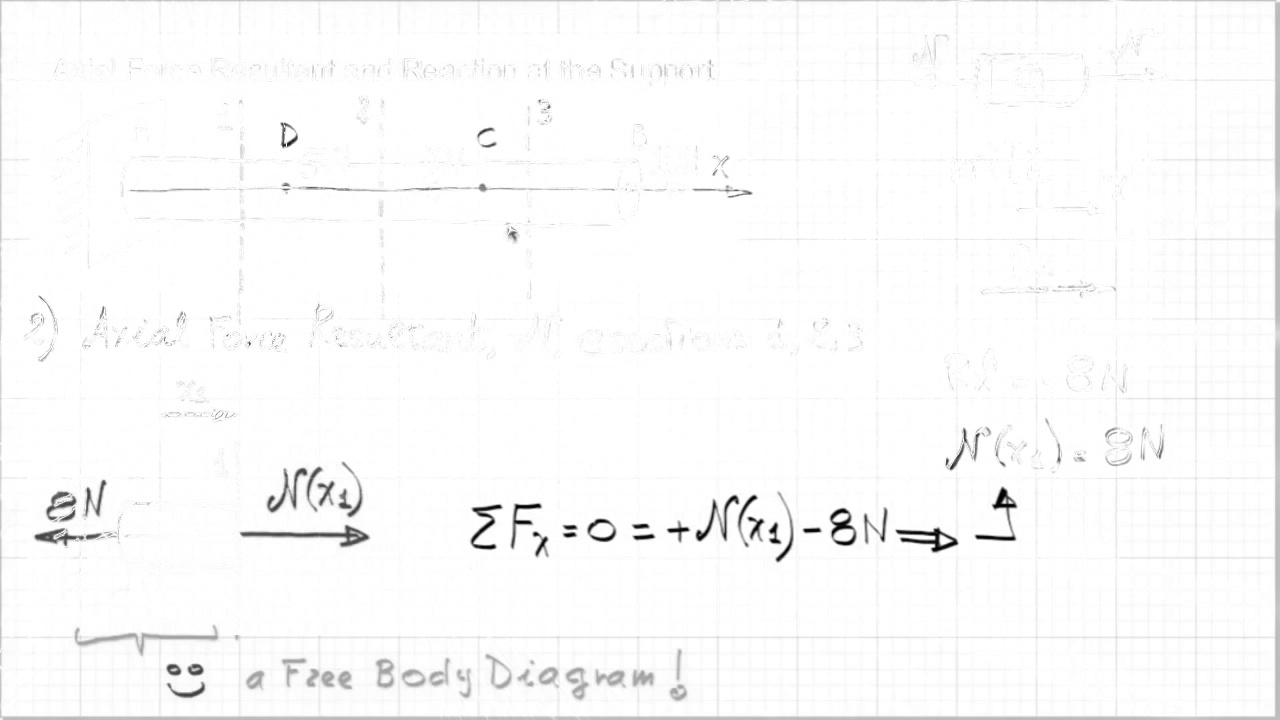 Axial Force Resultant and Reaction at the Support
1 2 3
D C B
5N x
2) Axial Force Resultant, N, @sections 1, 2, 3
x₁
Rℓ = -8N
N(x₁) = 8N
1
8N N(x₁)
ΣFₓ = 0 = +N(x₁) - 8N ⇒
a Free Body Diagram!